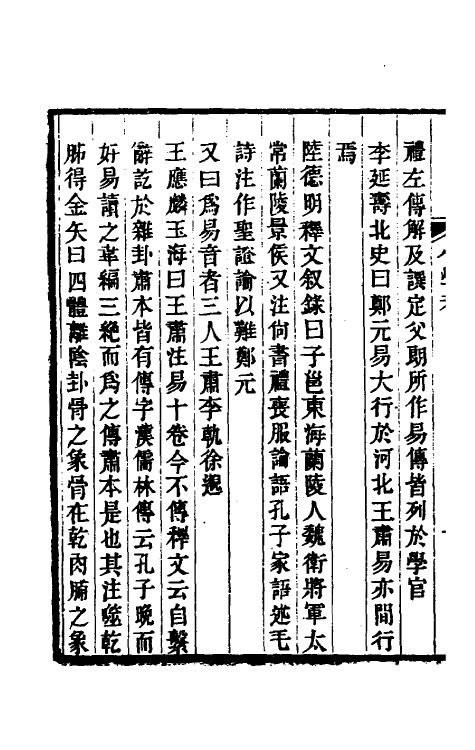 禮左傳解及譔定父朗所作易傳皆列於學官
李延壽北史曰鄭元易大行於河北王肅易亦間行
焉
陸德明釋文叙錄曰子邕東海蘭陵人魏衛將軍太
常蘭陵景侯又注尙書禮喪服論語孔子家語述毛
詩注作聖證論以難鄭元
又曰爲易音者三人王肅李軌徐邈
王應麟玉海曰王肅注易十卷今不傳釋文云自繫
辭訖於雜卦肅本皆有傳字漢儒林傳云孔子晩而
好易讀之韋編三絶而爲之傳肅本是也其注噬乾
胏得金矢曰四體離陰卦骨之象骨在乾肉脯之象